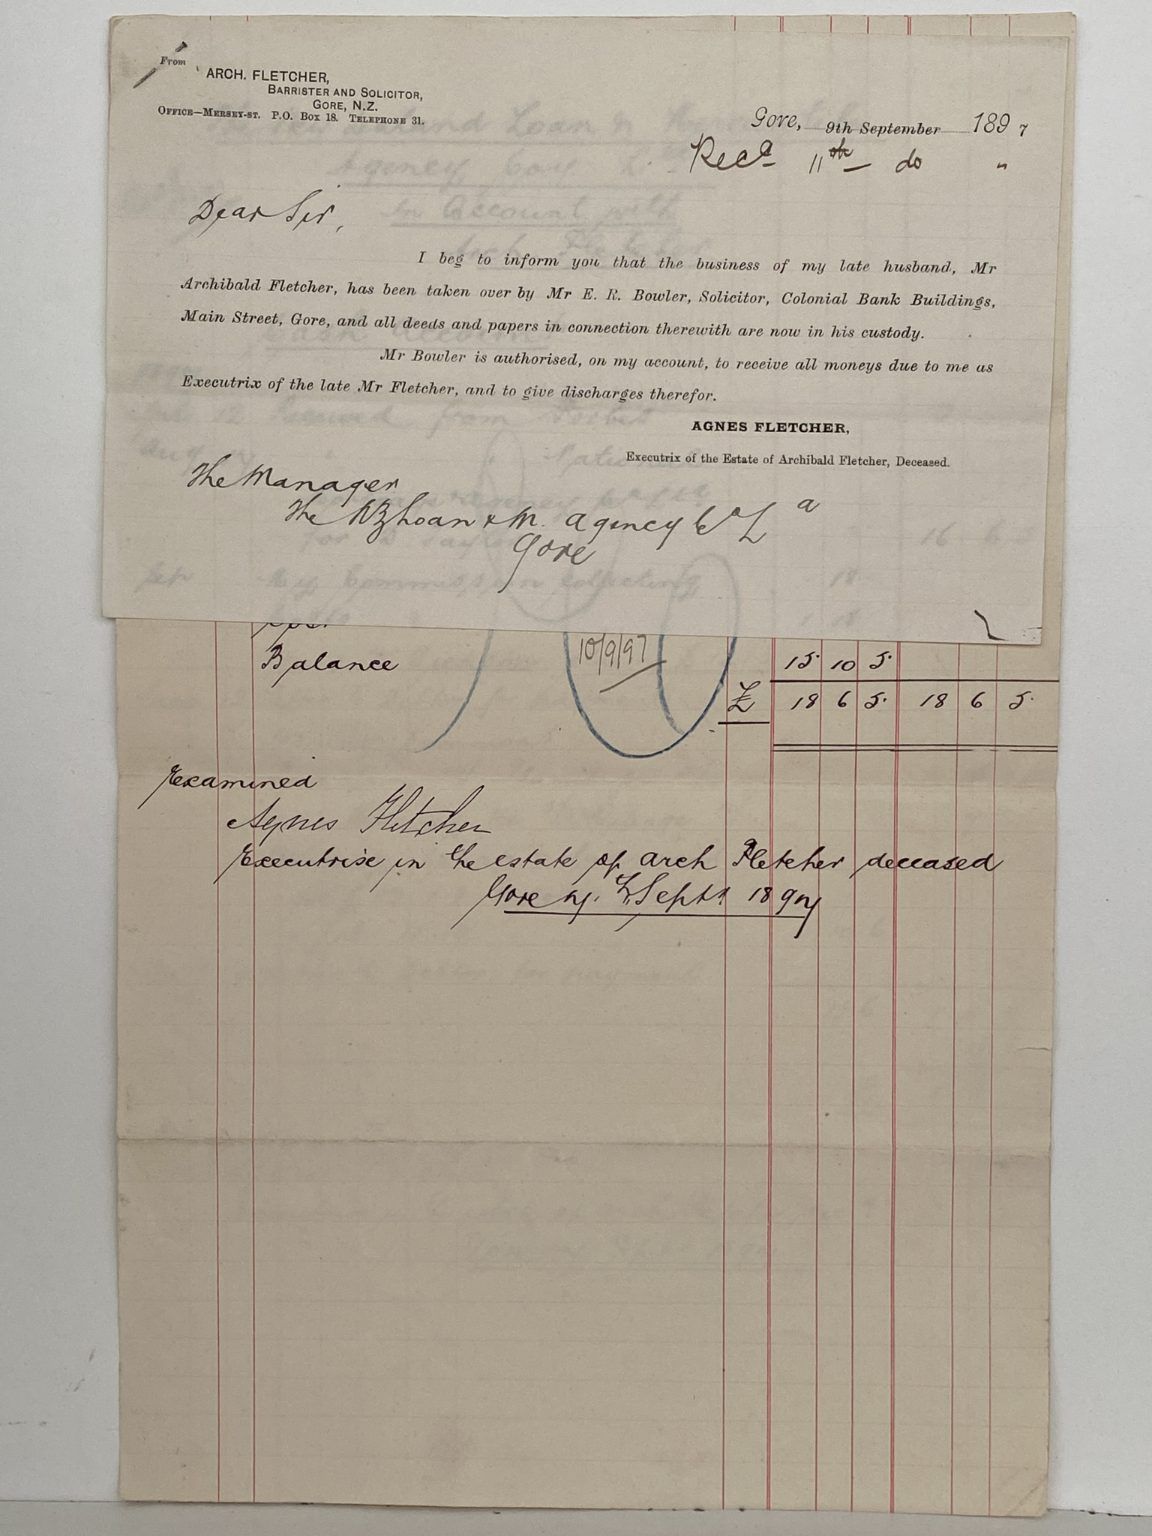 From
ARCH. FLETCHER,
BARRISTER AND SOLICITOR,
GORE, N.Z.
OFFICE—MERSEY-ST. P.O. BOX 18. TELEPHONE 31.
Gore, 9th September 1897
Recd 11th do "
Dear Sir,
I beg to inform you that the business of my late husband, Mr
Archibald Fletcher, has been taken over by Mr E. R. Bowler, Solicitor, Colonial Bank Buildings,
Main Street, Gore, and all deeds and papers in connection therewith are now in his custody.
Mr Bowler is authorised, on my account, to receive all moneys due to me as
Executrix of the late Mr Fletcher, and to give discharges therefor.
AGNES FLETCHER,
Executrix of the Estate of Archibald Fletcher, Deceased.
The Manager
The NZ Loan & M. Agency Co Ld
Gore
10/9/97
Balance 15 10 5
£ 18 6 5 18 6 5
Examined
Agnes Fletcher
Executrix in the estate of Arch Fletcher deceased
Gore Sept 1897